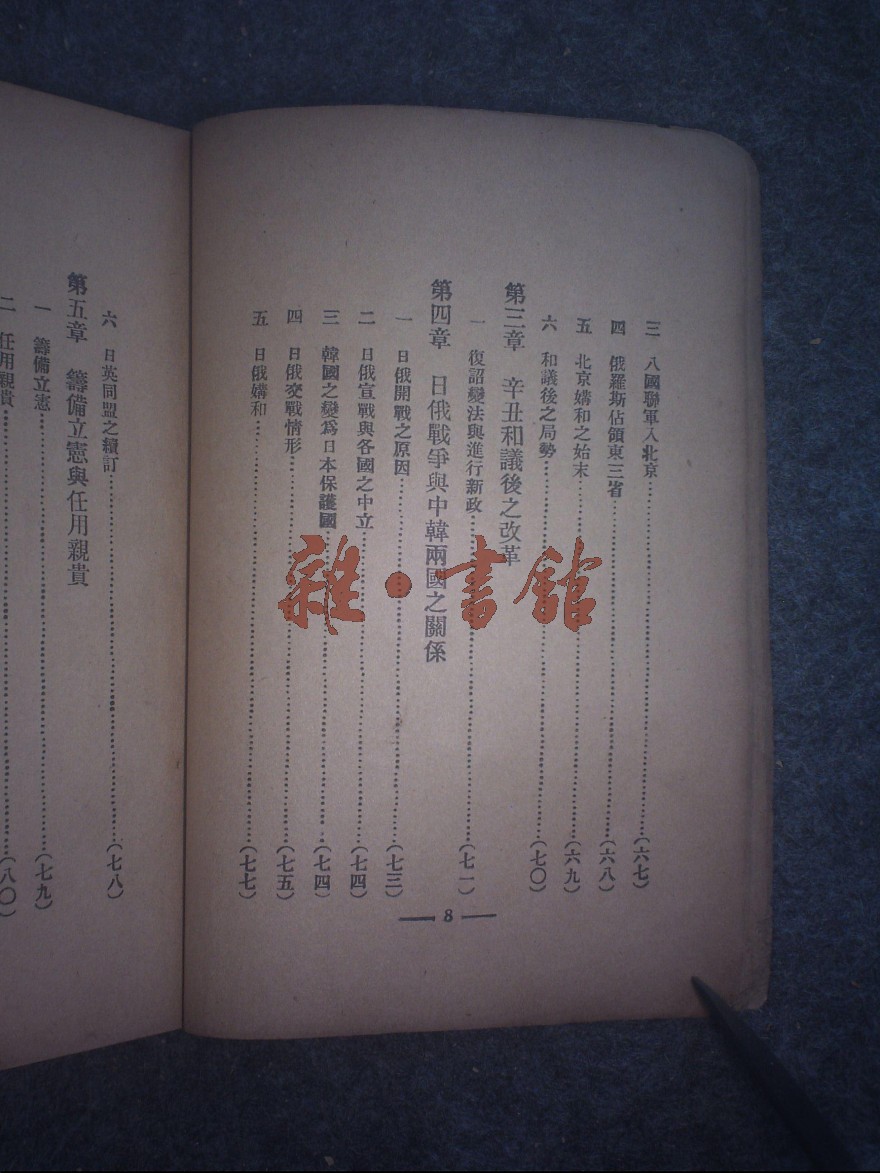 三　八國聯軍入北京……(六七)
四　俄羅斯佔領東三省……(六八)
五　北京媾和之始末……(六九)
六　和議後之局勢……(七〇)
第三章　辛丑和議後之改革
一　復詔變法與進行新政……(七一)
第四章　日俄戰爭與中韓兩國之關係
一　日俄開戰之原因……(七三)
二　日俄宣戰與各國之中立……(七四)
三　韓國之變爲日本保護國……(七四)
四　日俄交戰情形……(七五)
五　日俄媾和……(七七)
8
六　日英同盟之續訂……(七八)
第五章　籌備立憲與任用親貴
一　籌備立憲……(七九)
二　任用親貴……(八〇)
雜·書館